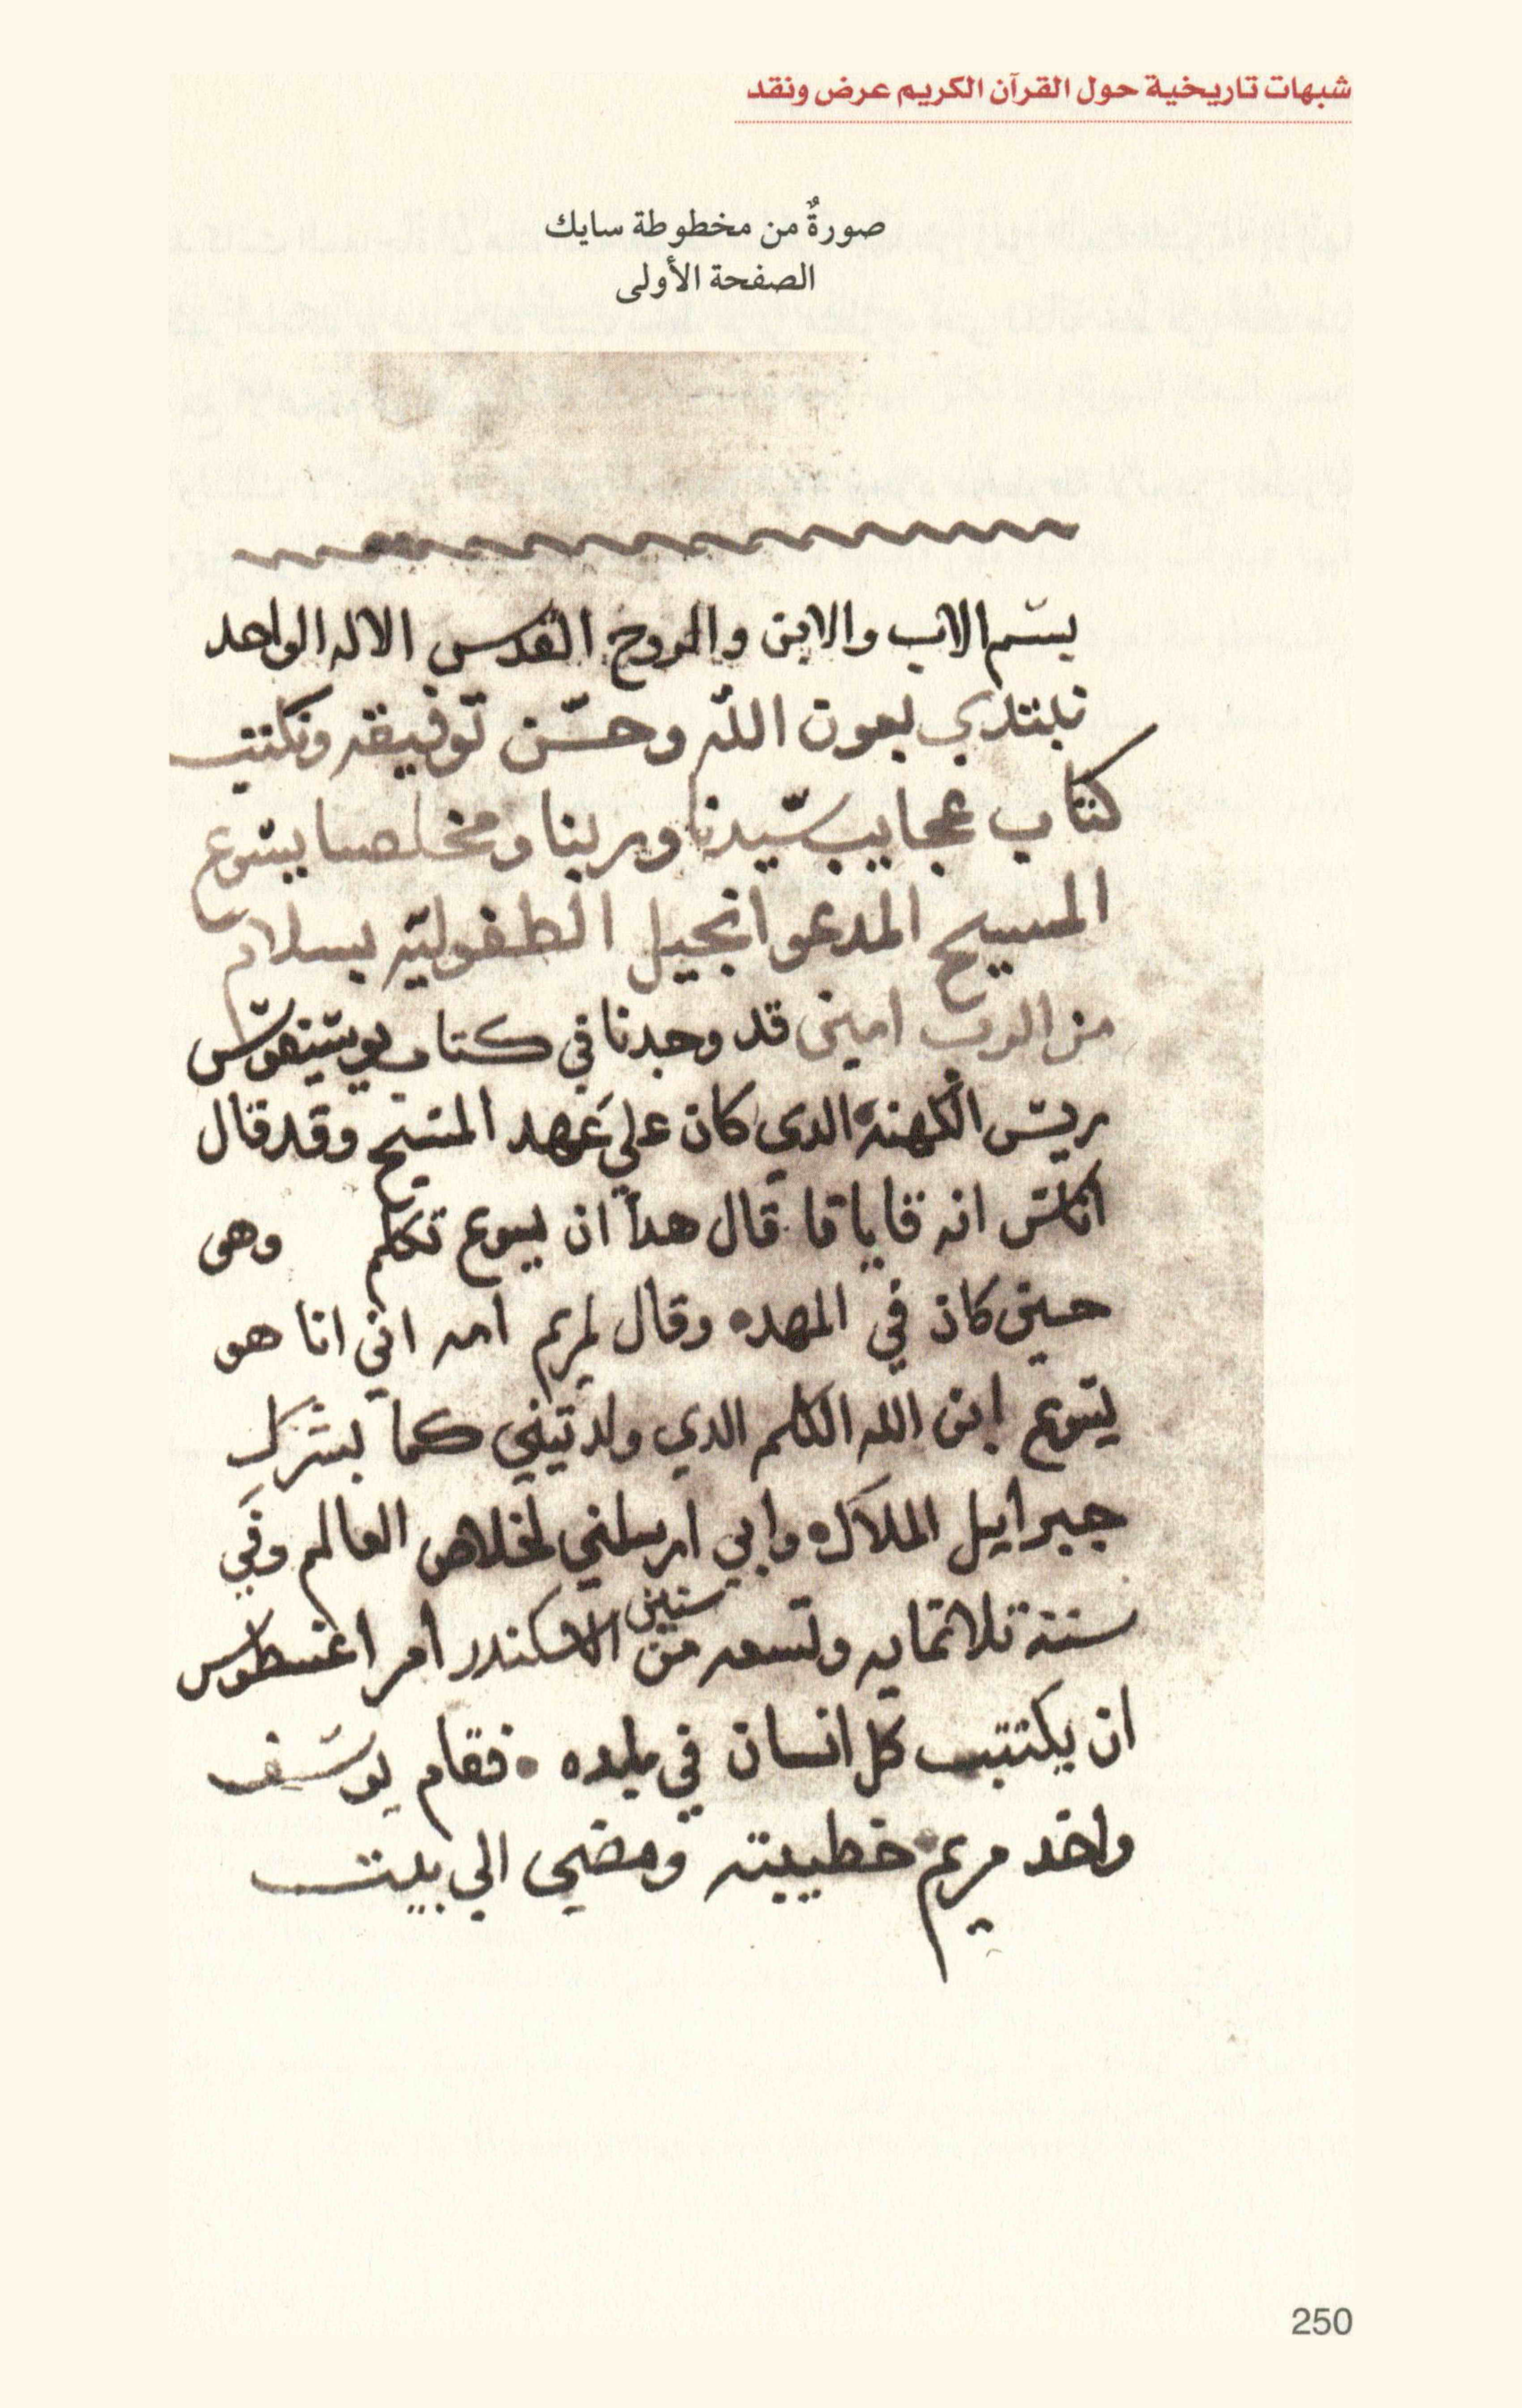 شبهات تاريخية حول القرآن الكريم عرض ونقد
صورةٌ من مخطوطة سايك
الصفحة الأولى
بسم الاب والابن والروح القدس الاله الواحد
نبتدي بعون الله وحسن توفيقه ونكتب
كتاب عجايب سيدنا وربنا ومخلصنا يسوع
المسيح المدعو انجيل الطفوليه بسلام
من الرب امين قد وجدنا في كتاب يوسيفوس
ريس الكهنه الدي كان علي عهد المسيح وقد قال
اناس انه قايافا قال هدا ان يسوع تكلم وهو
حين كان في المهده وقال لمريم امه اني انا هو
يسوع ابن الله الكلم الدي ولدتيني كما بشرك
جبرايل الملاك وابي ارسلني لخلاص العالم وفي
سنة تلاتمايه وتسعه من سنين الاسكندر امر اغسطوس
ان يكتتب كل انسان في بلده فقام يوسف
واخد مريم خطيبته ومضي الي بيت
250